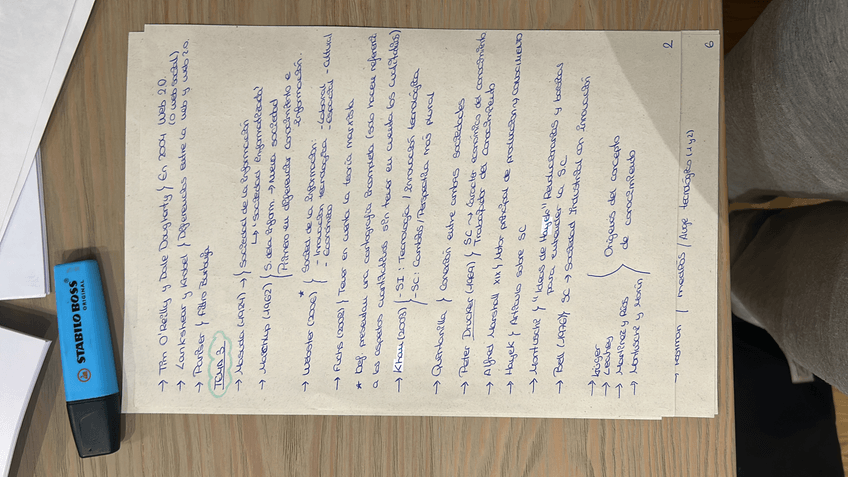 → Tim O'Reilly y Dale Dougherty } En 2004 Web 2.0.
(o web social)
→ Lankshear y Knobel } Diferencias entre la web y web 2.0.
→ Pariser } Filtro Burbuja
TEMA 3
→ Masuda (1984) → } Sociedad de la información
↳ "Sociedad informatizada"
→ Machlup (1962) } S. de la inform. → Nueva sociedad
Pionero en diferenciar conocimiento e
información.
* → Webster (2006) } Socied. de la información:
- Innovación tecnológica - Laboral - cultural
- Económico - espacial
→ Fuchs (2008) } Tener en cuenta la teoría marxista
* Def. presentan una cartografía incompleta (solo hacen referencia
a los aspectos cuantitativos sin tener en cuenta los cualitativos)
→ Khan (2003) } - SI: Tecnología / Innovación tecnológica
- SC: Cambios / Perspectiva más plural
→ Quintanilla } Conexión entre ambas sociedades
→ Peter Drucker (1969) } SC → Carácter económico del conocimiento
Trabajador del conocimiento
→ Alfred Marshall XIX } Motor principal de producción y conocimiento
→ Hayek } Artículo sobre SC
→ } "Ideas de Hayek"
para entender la SC
→ Bell (1976) } SC → Sociedad Industrial en innovación
→ Krüger
→
→ Martínez y Ros
→
Orígenes del concepto
de conocimiento
2
→ / medios / Auge tecnológico (1 y 2)
6
STABILO BOSS
ORIGINAL